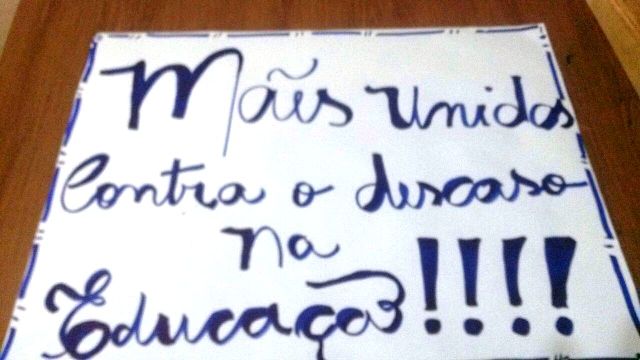 Mães Unidos
Contra o descaso
na
Educação!!!!